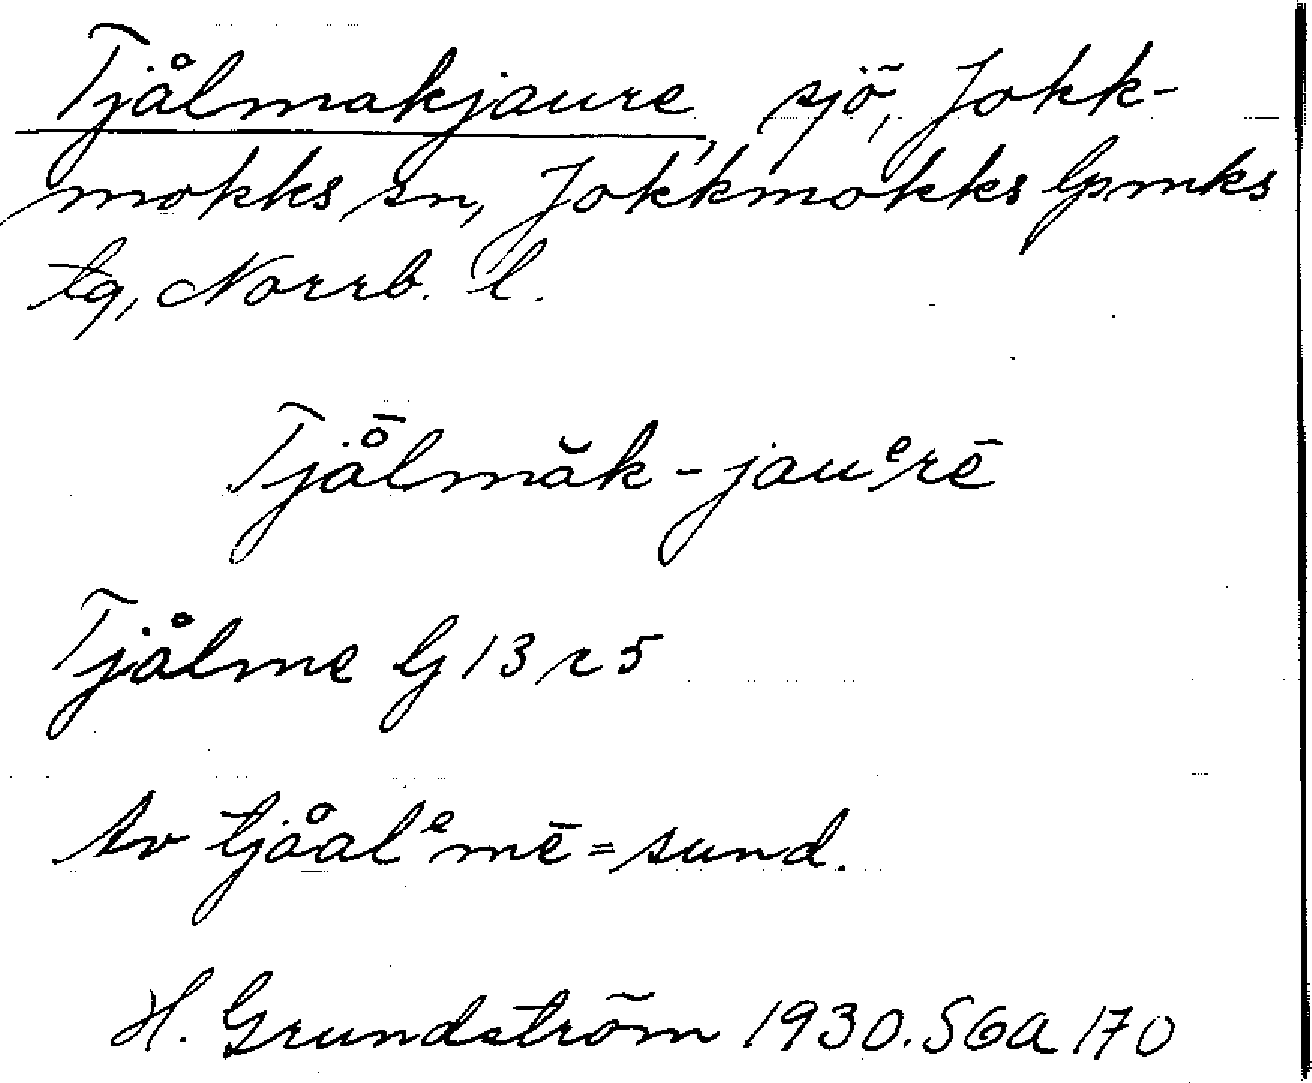 Tjålmakjaure, sjö, Jokk-
mokks sn, Jokkmokks lpmks
tg, Norrb. l.
Tjå̄lmăk-jauᵉrē
Tjålme G 13 r 5
Av tjåalᵉmē = sund.
H. Grundström 1930. SGA 170